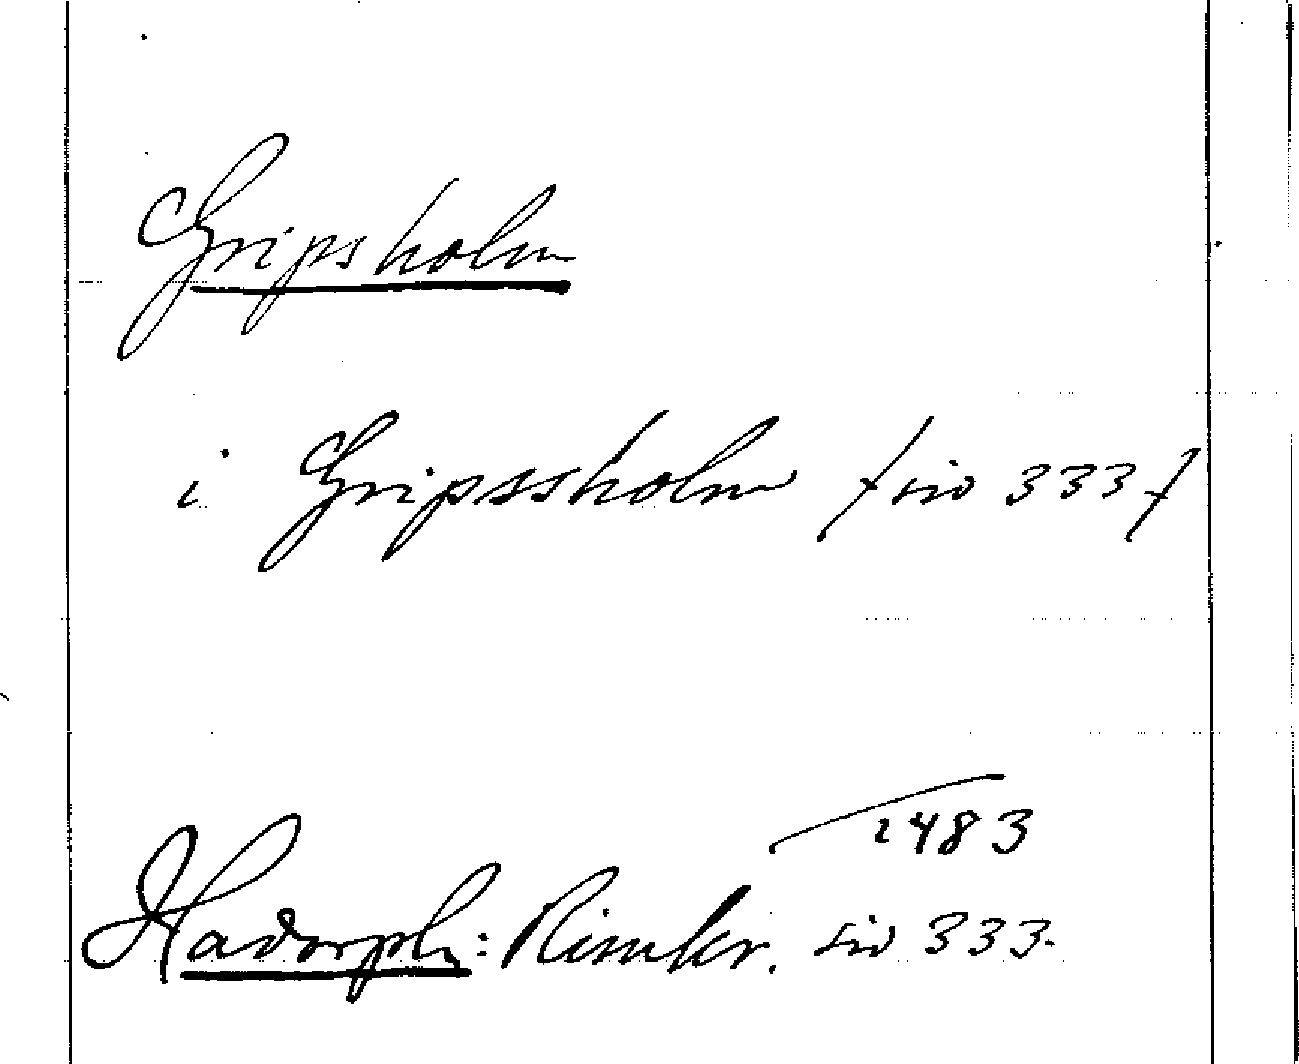 Gripsholm
i Gripssholm /sid 333/
1483
Hadorph: Rimkr. sid 333.